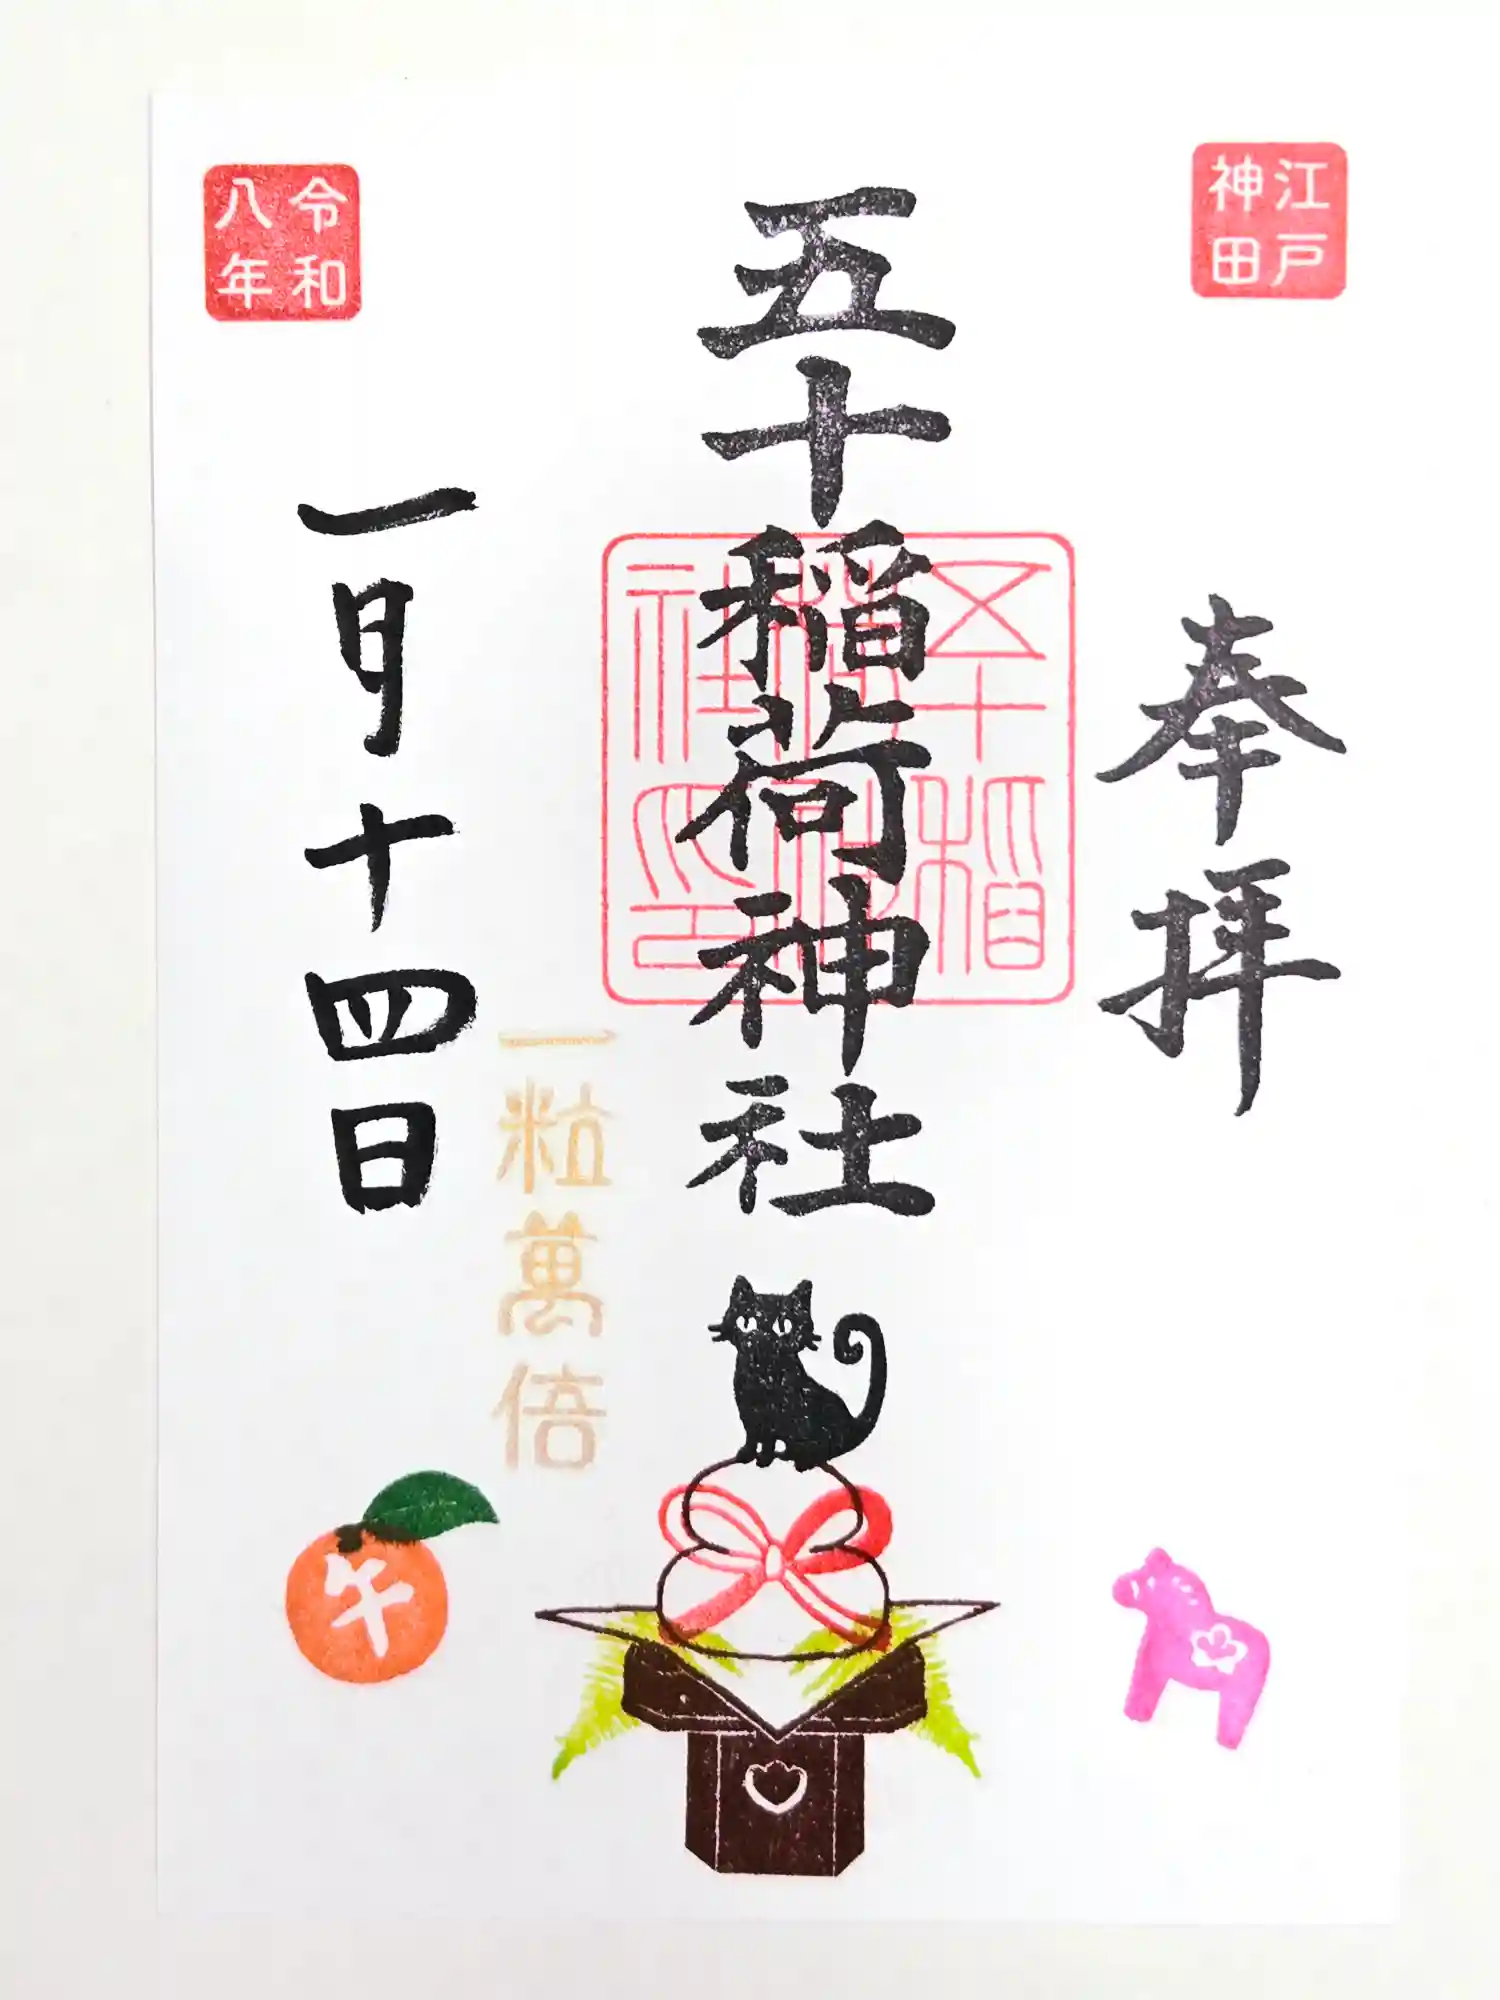 江戸
神田
奉拝
五十稲荷神社
五十稲
荷神
社之印
一粒萬倍
令和
八年
一月十四日
午